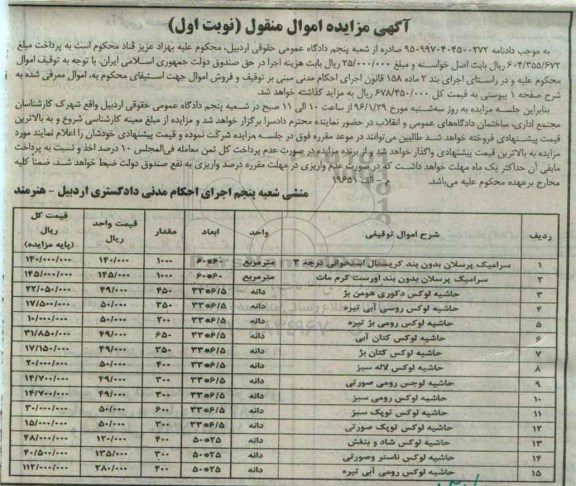 آگهی مزایده اموال منقول (نوبت اول)
به موجب دادنامه ۹۵۰۹۹۷۰۴۰۴۵۰۰۲۷۲ صادره از شعبه پنجم دادگاه عمومی حقوقی اردبیل، محکوم علیه بهزاد عزیز قناد محکوم است به پرداخت مبلغ
۶۰۴/۳۵۵/۶۷۲ ریال بابت اصل خواسته و مبلغ ۲۵/۰۰۰/۰۰۰ ریال بابت هزینه اجرا در حق صندوق دولت جمهوری اسلامی ایران، با توجه به توقیف اموال
محکوم علیه و در راستای اجرای بند ۲ ماده ۱۵۸ قانون اجرای احکام مدنی مبنی بر توقیف و فروش اموال جهت استیفای محکوم به، اموال معرفی شده به
شرح صفحه ۱ پیوستی به قیمت کل ۶۷۸/۴۵۰/۰۰۰ ریال به مزاید گذاشته خواهد شد.
بنابراین جلسه مزایده به روز سه‌شنبه مورخ ۹۶/۱/۲۹ از ساعت ۱۰ الی ۱۱ صبح در شعبه پنجم دادگاه عمومی حقوقی اردبیل واقع شهرک کارشناسان
مجتمع اداری، ساختمان دادگاه‌های عمومی و انقلاب در حضور نماینده محترم دادسرا برگزار خواهد شد و مزایده از مبلغ معینه کارشناسی شروع و به بالاترین
قیمت پیشنهادی فروخته خواهد شد طالبین می‌توانند در موعد مقرره فوق در جلسه مزایده شرکت نموده و قیمت پیشنهادی خودشان را اعلام نمایند مورد
مزایده به بالاترین قیمت پیشنهادی واگذار خواهد شد و از برنده مزایده در صورت عدم پرداخت کل ثمن معامله فی‌المجلس ۱۰ درصد اخذ و نسبت به پرداخت
مابقی آن حداکثر یک ماه مهلت خواهد داشت که در صورت عدم واریزی در مهلت مقرره درصد واریزی به نفع صندوق دولت ضبط خواهد شد. ضمنا کلیه
مخارج برعهده محکوم علیه می‌باشد. الف ۱۹۶۵۱
منشی شعبه پنجم اجرای احکام مدنی دادگستری اردبیل - هنرمند
ردیف شرح اموال توقیفی واحد ابعاد مقدار قیمت واحد ریال قیمت کل ریال (پایه مزایده)
۱ سرامیک پرسلان بدون بند کریستال استخوانی درجه ۳ مترمربع ۶۰*۶۰ ۱۰۰۰ ۱۴۰/۰۰۰ ۱۴۰/۰۰۰/۰۰۰
۲ سرامیک پرسلان بدون بند اورست کرم مات مترمربع ۶۰*۶۰ ۱۰۰۰ ۱۴۵/۰۰۰ ۱۴۵/۰۰۰/۰۰۰
۳ حاشیه لوکس دکوری هومن بژ دانه ۳۳*۶/۵ ۴۵۰ ۴۹/۰۰۰ ۲۲/۰۵۰/۰۰۰
۴ حاشیه لوکس روسی آبی تیره دانه ۳۳*۶/۵ ۳۵۰ ۵۰/۰۰۰ ۱۷/۵۰۰/۰۰۰
۵ حاشیه لوکس رومی بژ تیره دانه ۳۳*۶/۵ ۲۰۰ ۵۰/۰۰۰ ۱۰/۰۰۰/۰۰۰
۶ حاشیه لوکس کتان آبی دانه ۳۳*۶/۵ ۶۵۰ ۴۹/۰۰۰ ۳۱/۸۵۰/۰۰۰
۷ حاشیه لوکس کتان بژ دانه ۳۳*۶/۵ ۳۵۰ ۴۹/۰۰۰ ۱۷/۱۵۰/۰۰۰
۸ حاشیه لوکس لاله سبز دانه ۳۳*۶/۵ ۴۰۰ ۵۰/۰۰۰ ۲۰/۰۰۰/۰۰۰
۹ حاشیه لوجس رومی صورتی دانه ۳۳*۶/۵ ۳۰۰ ۴۹/۰۰۰ ۱۴/۷۰۰/۰۰۰
۱۰ حاشیه لوکس رومی سبز دانه ۳۳*۶/۵ ۳۰۰ ۴۹/۰۰۰ ۱۴/۷۰۰/۰۰۰
۱۱ حاشیه لوکس توپک سبز دانه ۳۳*۶/۵ ۶۰۰ ۵۰/۰۰۰ ۳۰/۰۰۰/۰۰۰
۱۲ حاشیه لوکس توپک صورتی دانه ۳۳*۶/۵ ۳۰۰ ۵۰/۰۰۰ ۱۵/۰۰۰/۰۰۰
۱۳ حاشیه لوکس شاد و بنفش دانه ۵۰*۲۵ ۴۰۰ ۱۲۰/۰۰۰ ۴۸/۰۰۰/۰۰۰
۱۴ حاشیه لوکس ناستر وصورتی دانه ۵۰*۲۵ ۳۰۰ ۱۳۵/۰۰۰ ۴۰/۵۰۰/۰۰۰
۱۵ حاشیه لوکس رومی آبی تیره دانه ۵۰*۲۵ ۴۰۰ ۲۸۰/۰۰۰ ۱۱۲/۰۰۰/۰۰۰